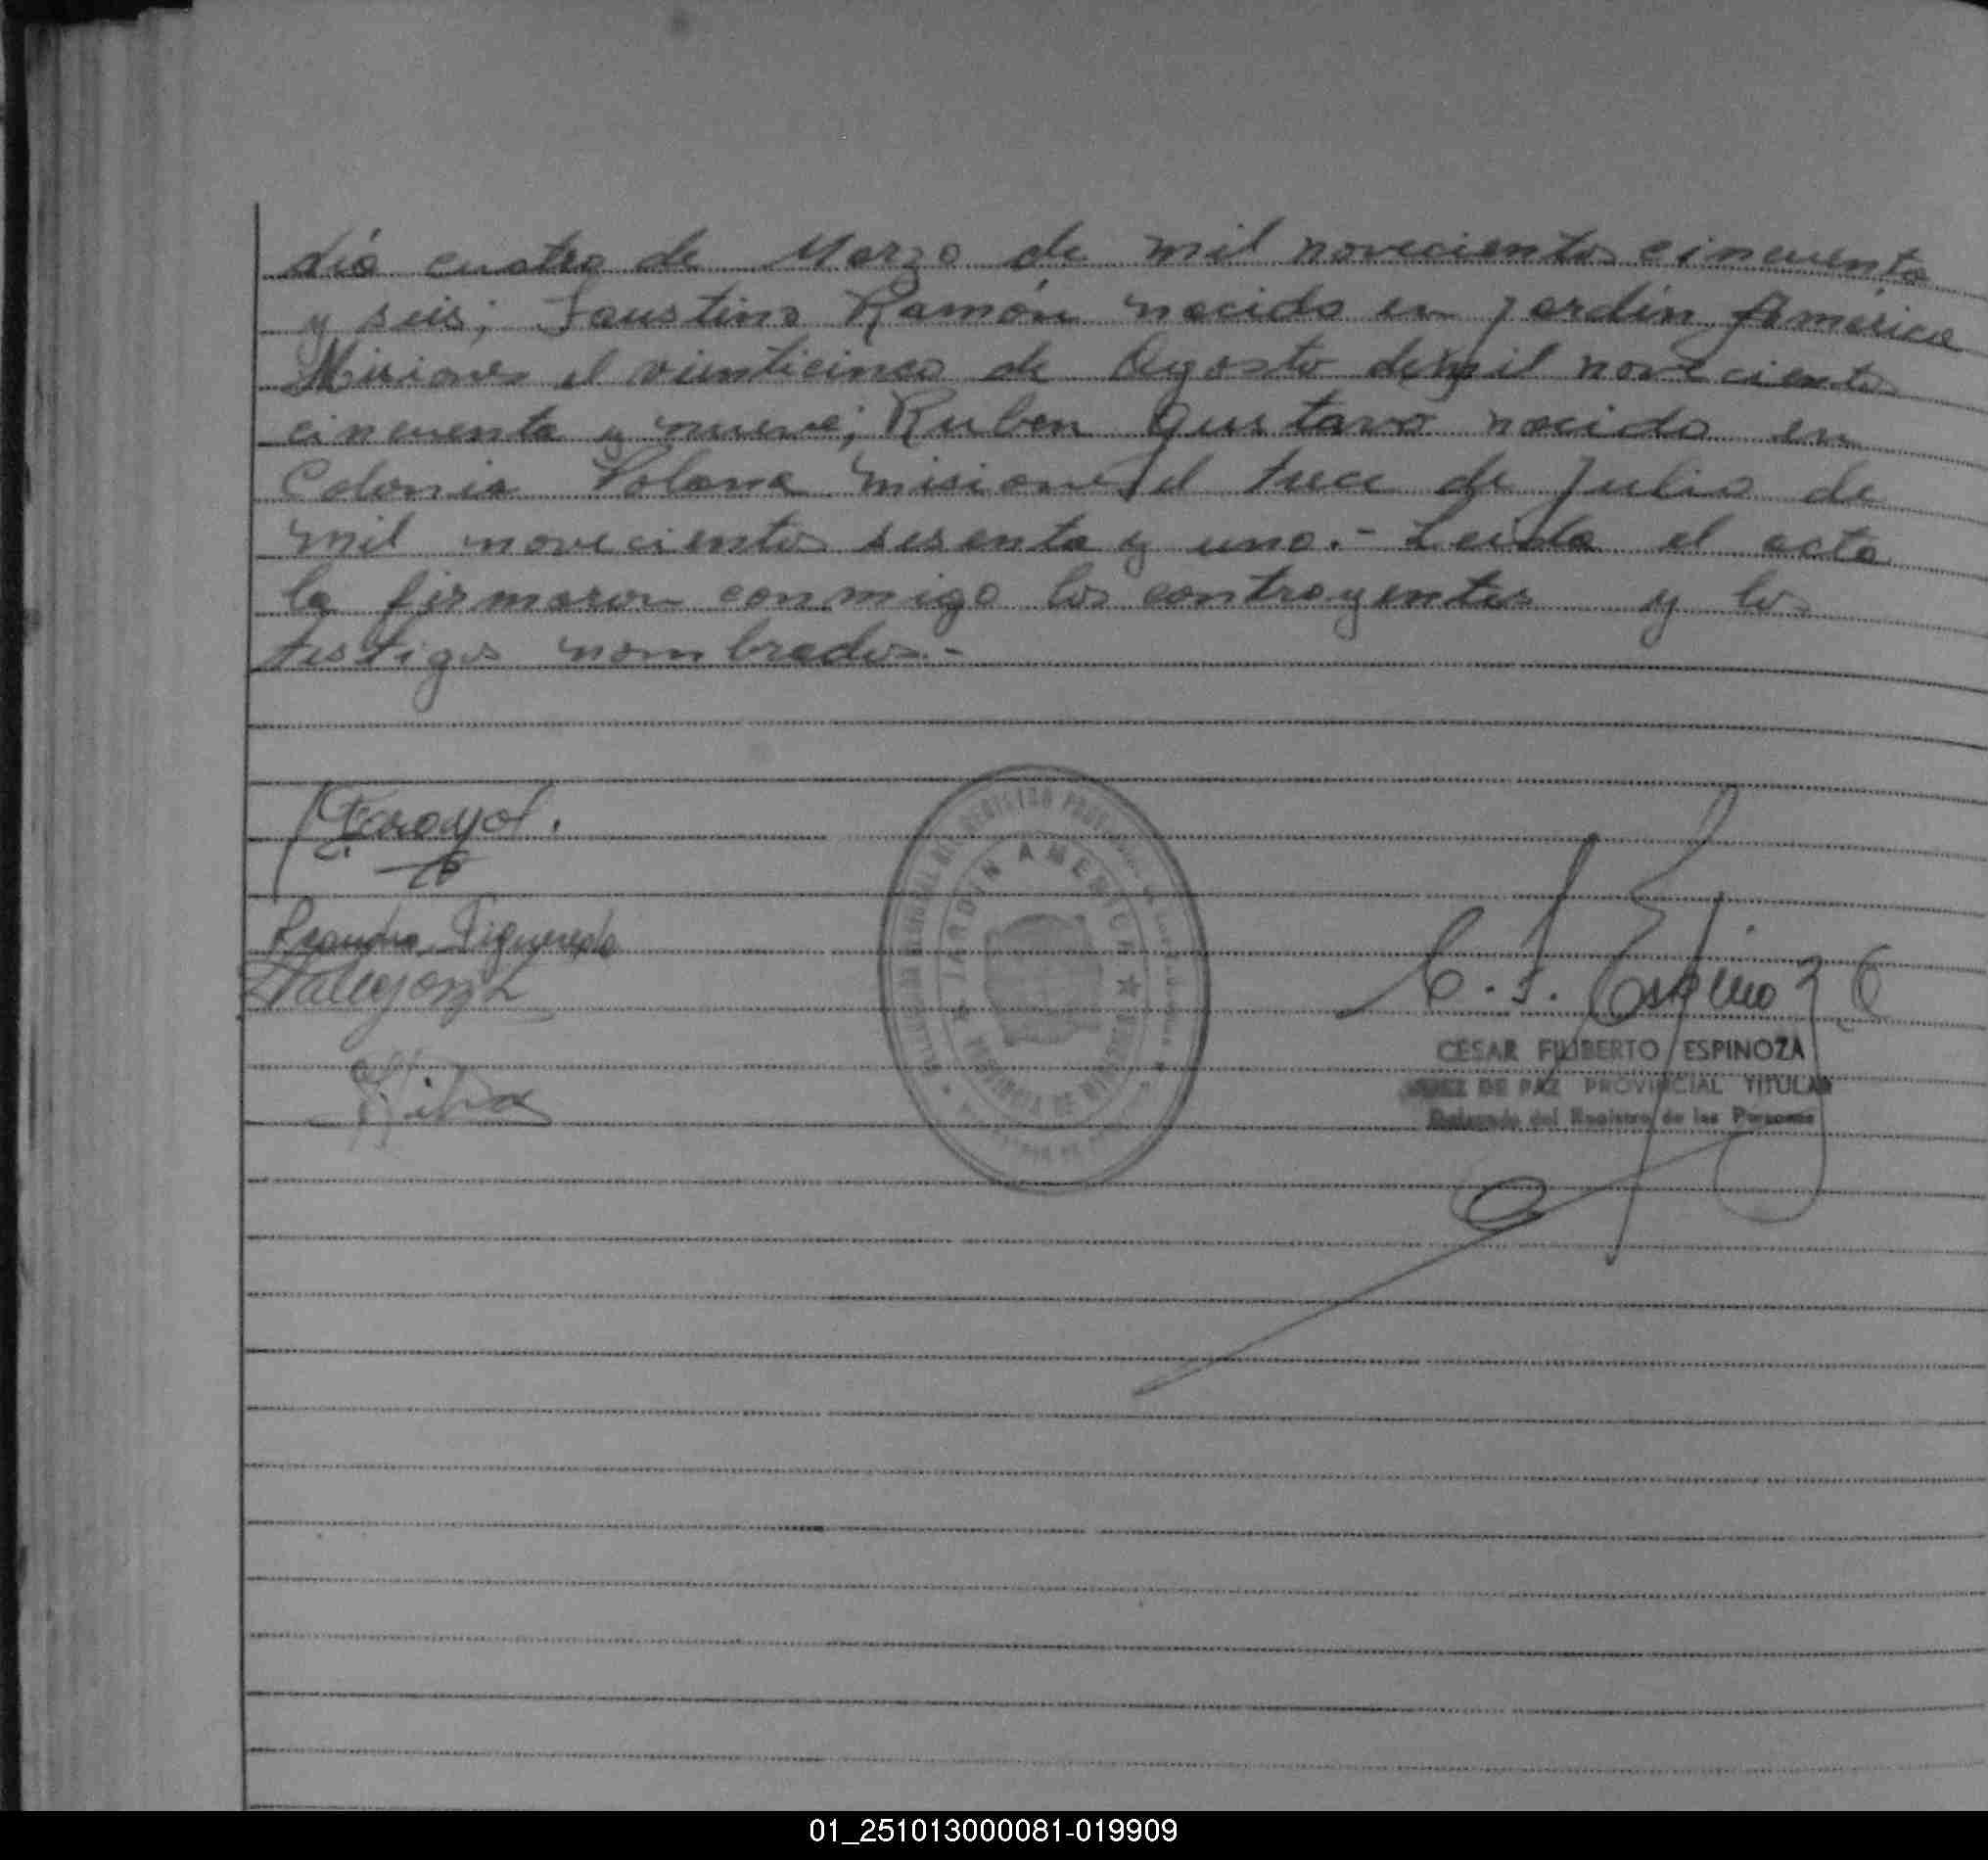 día cuatro de Marzo de mil novecientos cincuenta
y seis; Faustino Ramón nacido en Jardín América
Misiones el vienticinco de Agosto de mil novecientos
cincuenta y nueve; Ruben Gustavo nacido en
Colonia Polana Misiones el trece de Julio de
mil novecientos sesenta y uno.- Leída el acta
la firmaron conmigo los contrayentes y los
testigos nombrados.-
JARDIN AMERICA
PROVINCIA DE MISIONES
Leandro Figueredo
C. F. Espinoza
CESAR FILIBERTO ESPINOZA
JUEZ DE PAZ PROVINCIAL TITULAR
Delegado del Registro de las Personas
01_251013000081-019909